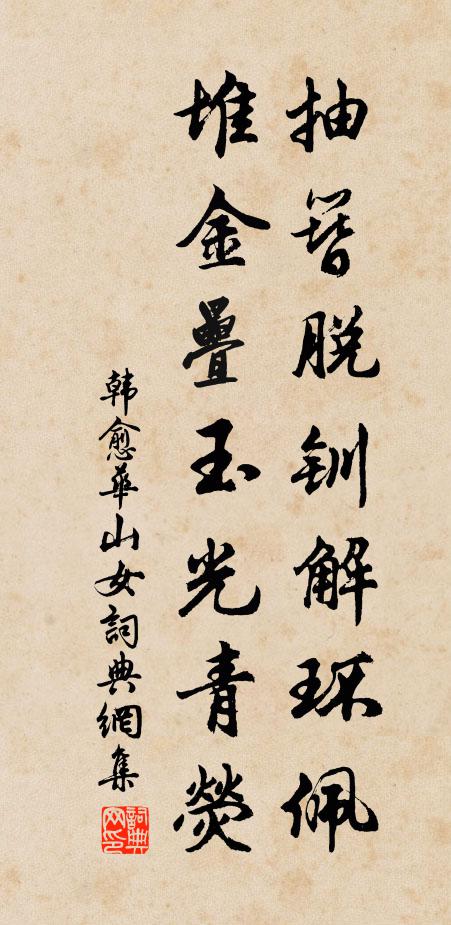 抽簪脱钏解环佩
堆金疊玉光青熒
韩愈華山女詞典網集
詞典网印